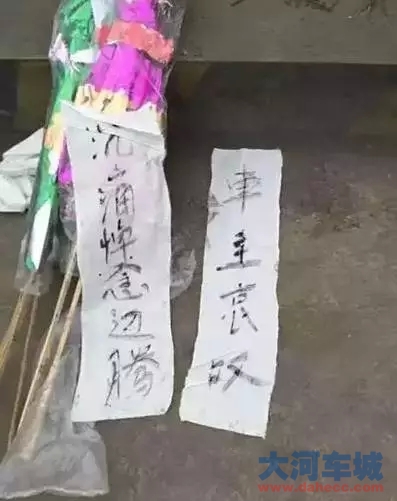 沉痛悼念迈腾
车主哀叹
大河车城
www.dahecc.com